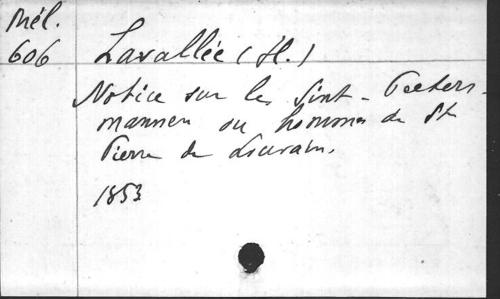 Mél.
606 Lavallée (H.)
Notice sur les Sint-Peeters-
mannen ou hommes de St
Pierre de Louvain.
1853